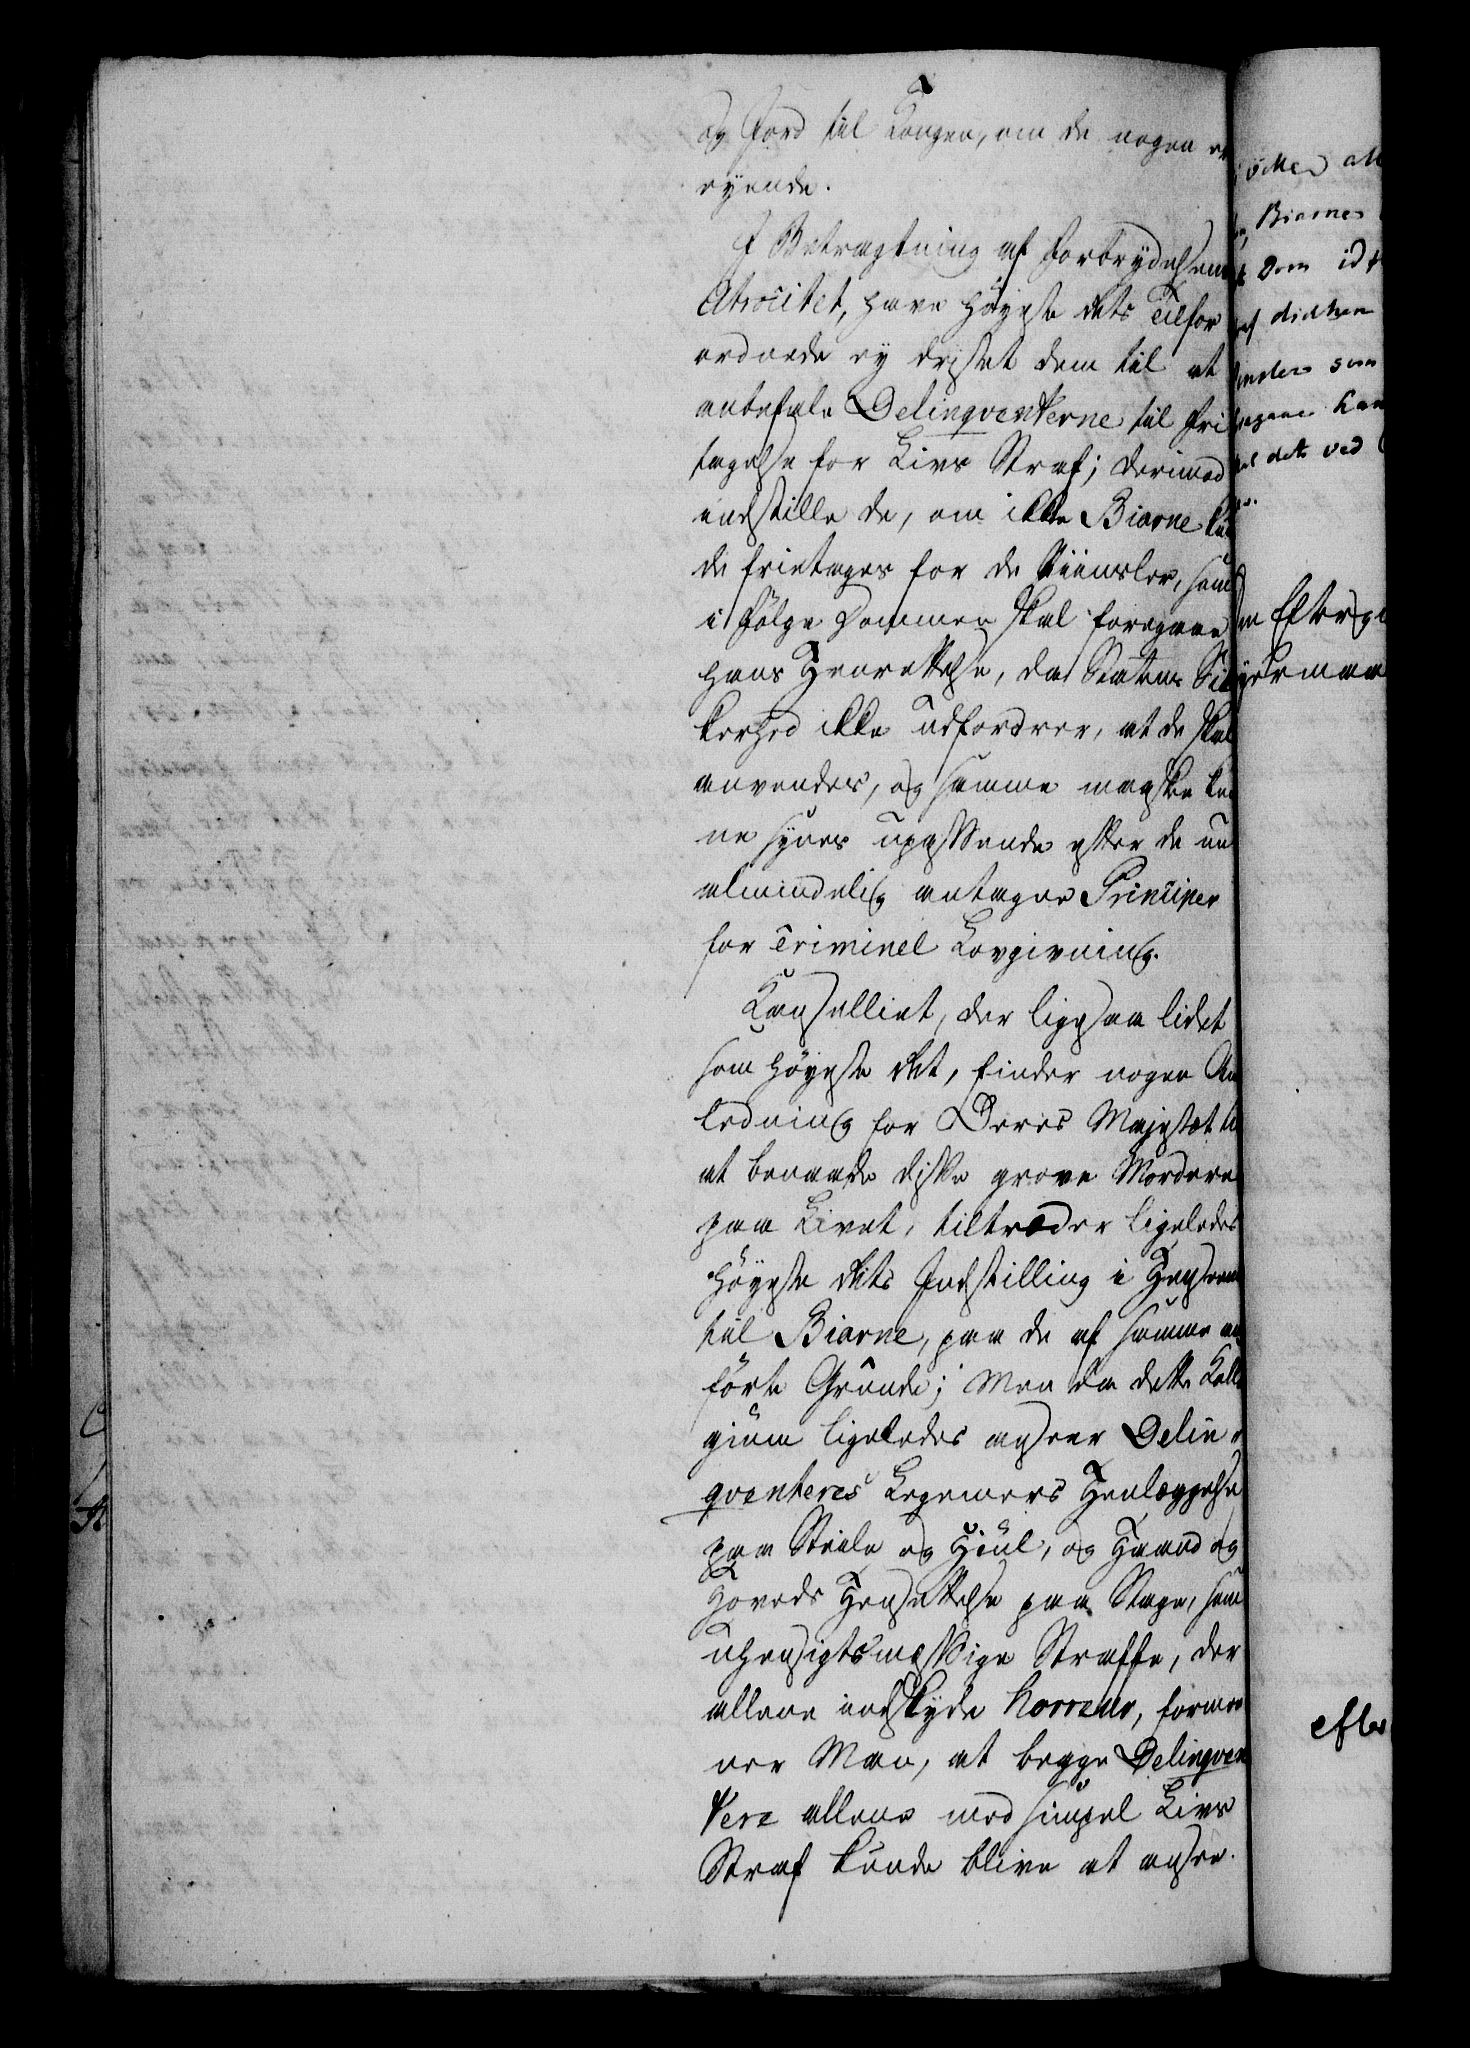 og Jord til Kongen, om de nogen er
eyende.
I Betragtning af Forbrydelsens
Atrocitet, have Høyeste Rets Tilfor
ordnede ey dristet dem til at
anbefale Delinqventerne til Fri
tagelse for Livs Straf; derimod
indstille de, om ikke Biarne kun
de frietages for de Kniivsler, som
i Følge Dommen skal foregaae
hans Henrettelse, da Statens Sik
kerhed ikke udfordrer, at de skal
anvendes, og samme maaskee kun
ne synes upassende efter de nu
almindelig antagne Principer
for Criminel Lovgivning.
Cancelliet, der ligesaa lidet
som Høyeste Ret, finder nogen An
ledning for Deres Majestæt til
at benaade disse grove Mordere
paa Livet, tiltræder ligeledes
Høyeste Rets Indstilling i Henseende
til Biarne, paa de af samme an
førte Grunde; Men da dette Colle
gium ligeledes ansees Delin
qventeres Legemers Henlæggelse
paa Steile og Hiul, og Haand og
Hoveds Hensættelse paa Stage, som
uhensigtsmæssige Straffe, der
allene indskyde horreur, formee
ner Man, at begge Delinqven
tere allene med simpel Livs
Straf kunde blive at ansee.
Biarnes
Dom
didhen
som
dets ved
efter